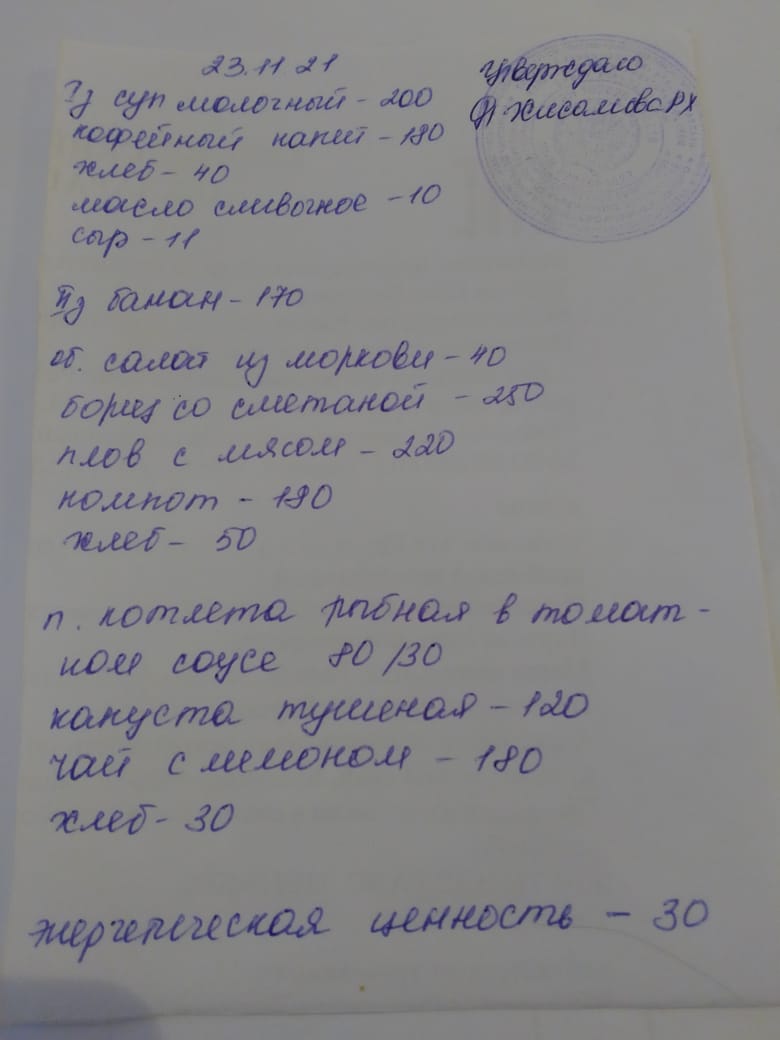 23.11.21
Утверждаю
Iз суп молочный - 200
Хисамова РХ
кофейный напит - 180
хлеб - 40
масло сливочное - 10
сыр - 11
IIз банан - 170
об. салат из моркови - 40
борщ со сметаной - 250
плов с мясом - 220
компот - 180
хлеб - 50
п. котлета рыбная в томат -
ном соусе 80/30
капуста тушеная - 120
чай с лимоном - 180
хлеб - 30
энергетическая ценность - 30